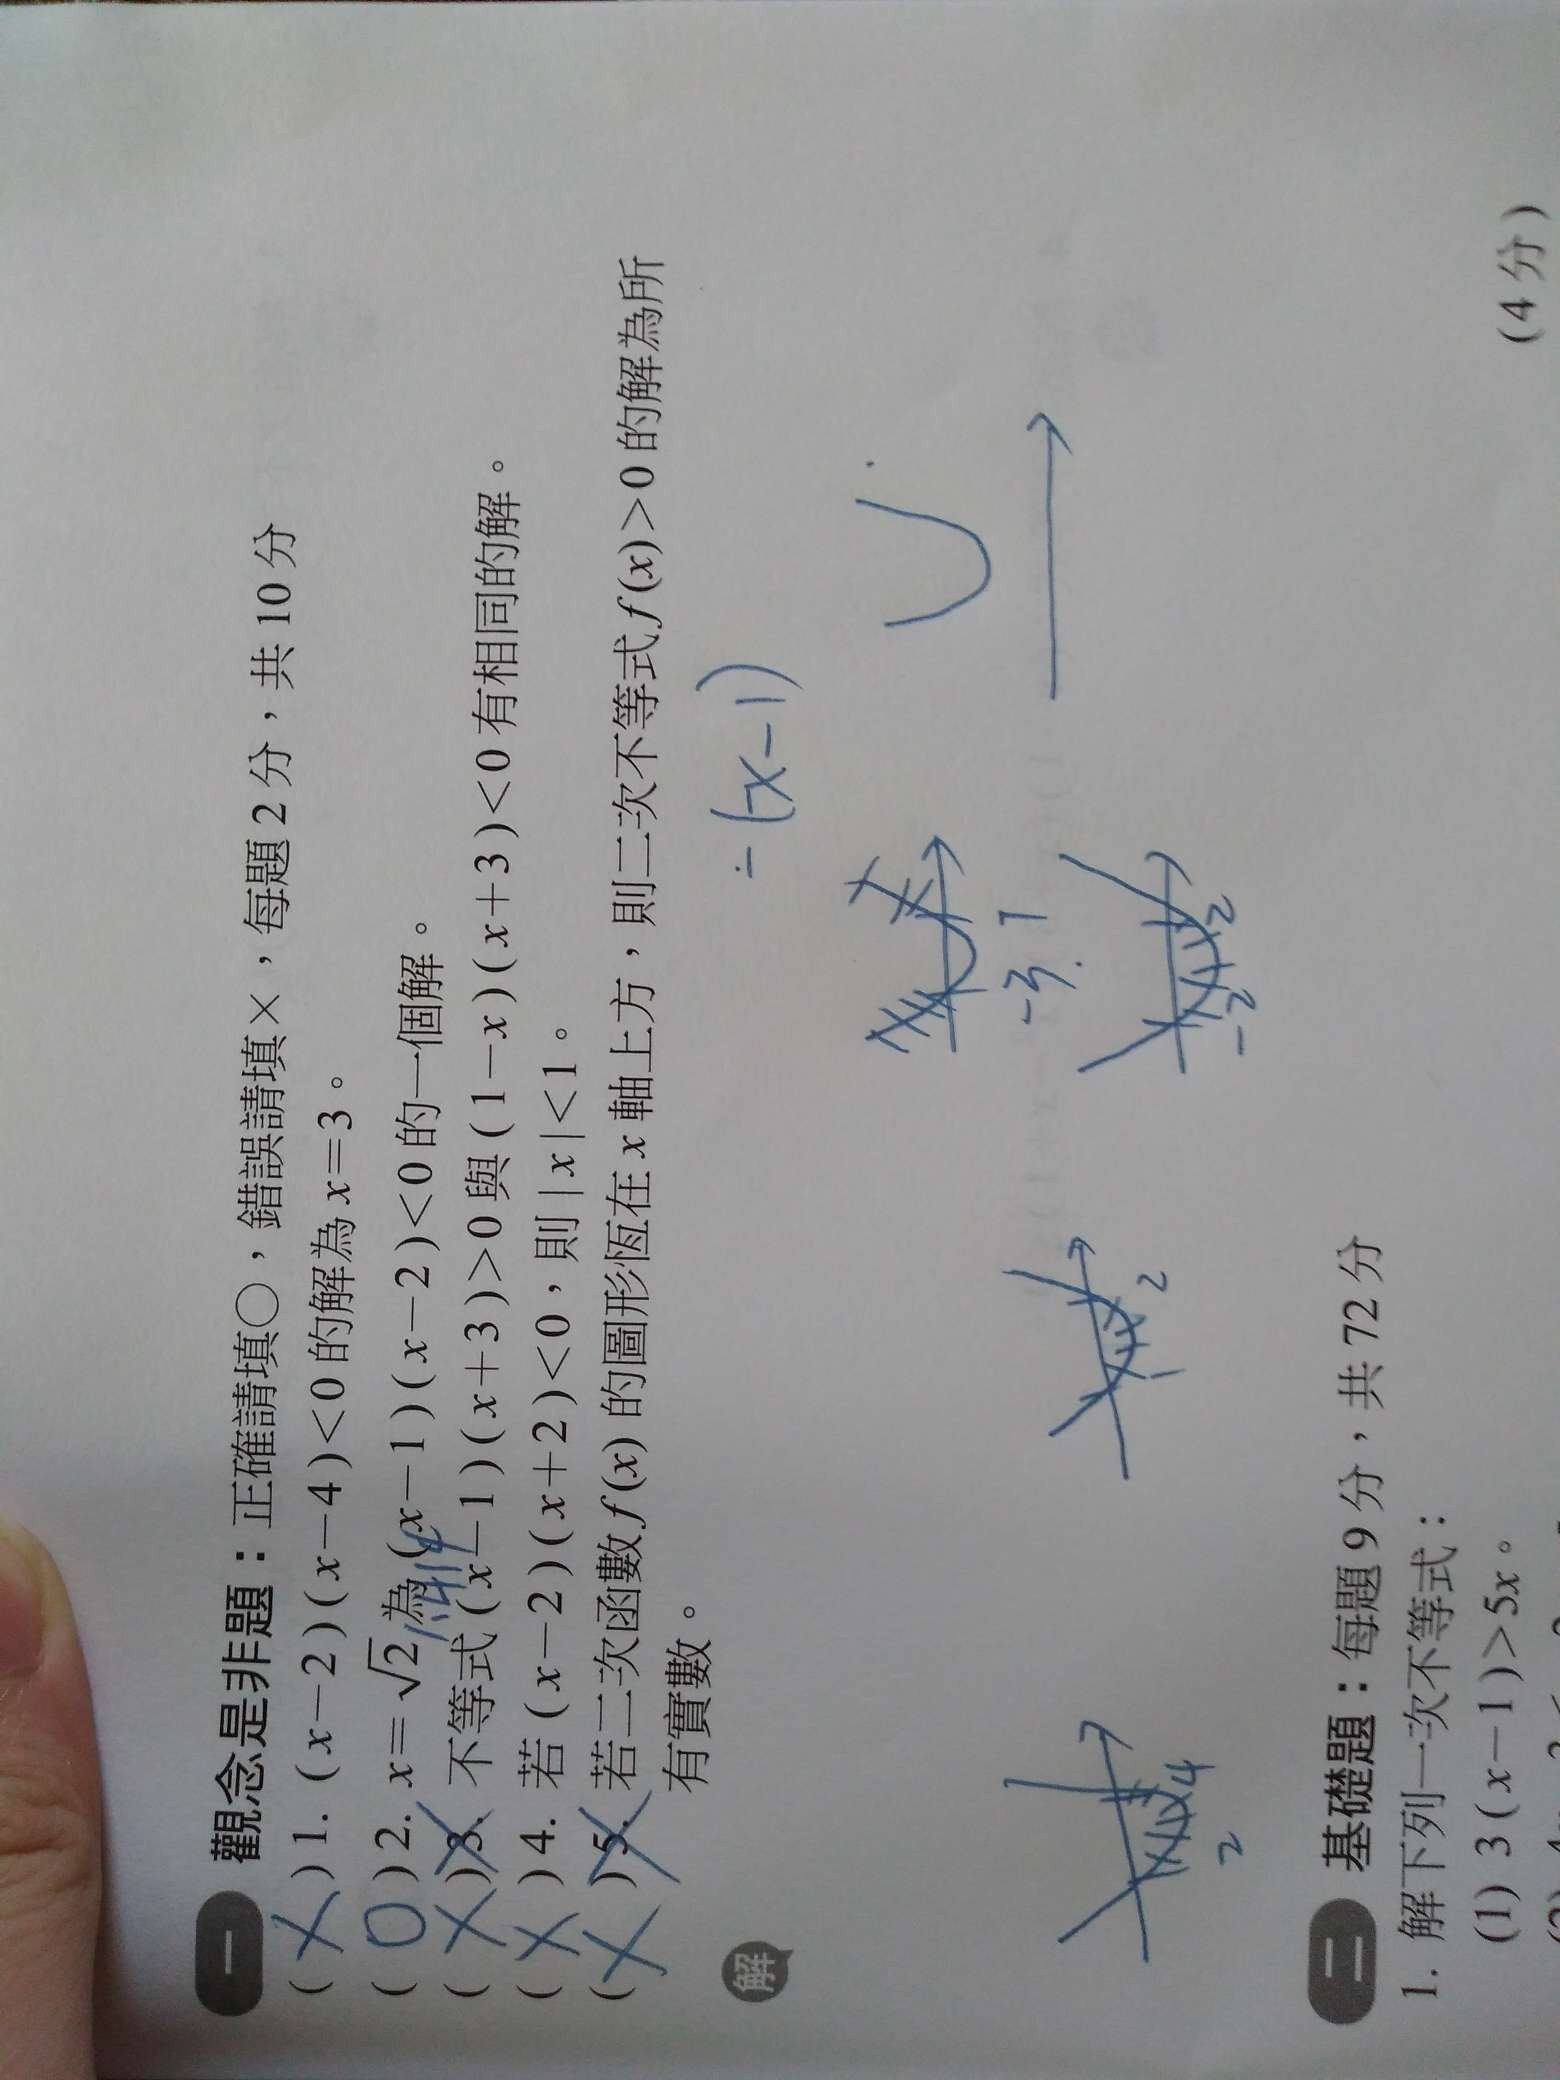 一 觀念是非題：正確請填○，錯誤請填×，每題2分，共10分
( X ) 1. (x－2)(x－4)<0的解為x=3。
( O ) 2. x=√2為(x－1)(x－2)<0的一個解。
1.414
( X ) 3. 不等式(x－1)(x+3)>0與(1－x)(x+3)<0有相同的解。
( X ) 4. 若(x－2)(x+2)<0，則|x|<1。
( X ) 5. 若二次函數f(x)的圖形恆在x軸上方，則二次不等式f(x)>0的解為所
有實數。
解
-(x-1)
-3 1
2 4
1 2
-2 2
(4分)
二 基礎題：每題9分，共72分
1. 解下列一次不等式：
(1) 3(x－1)>5x。